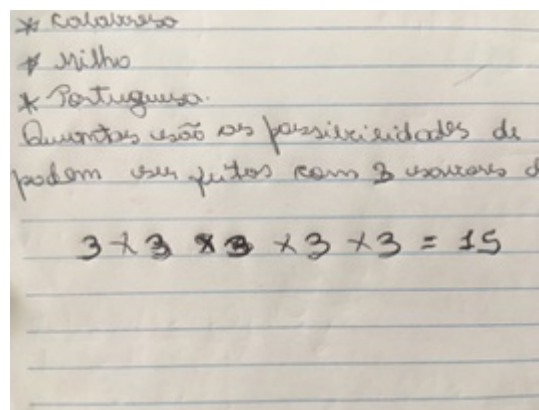 * Calabresa
* Milho
* Portuguesa.
Quantas são as possibilidades de
podem ser feitos com 3 sabores d
3 x 3 x 3 x 3 x 3 = 15